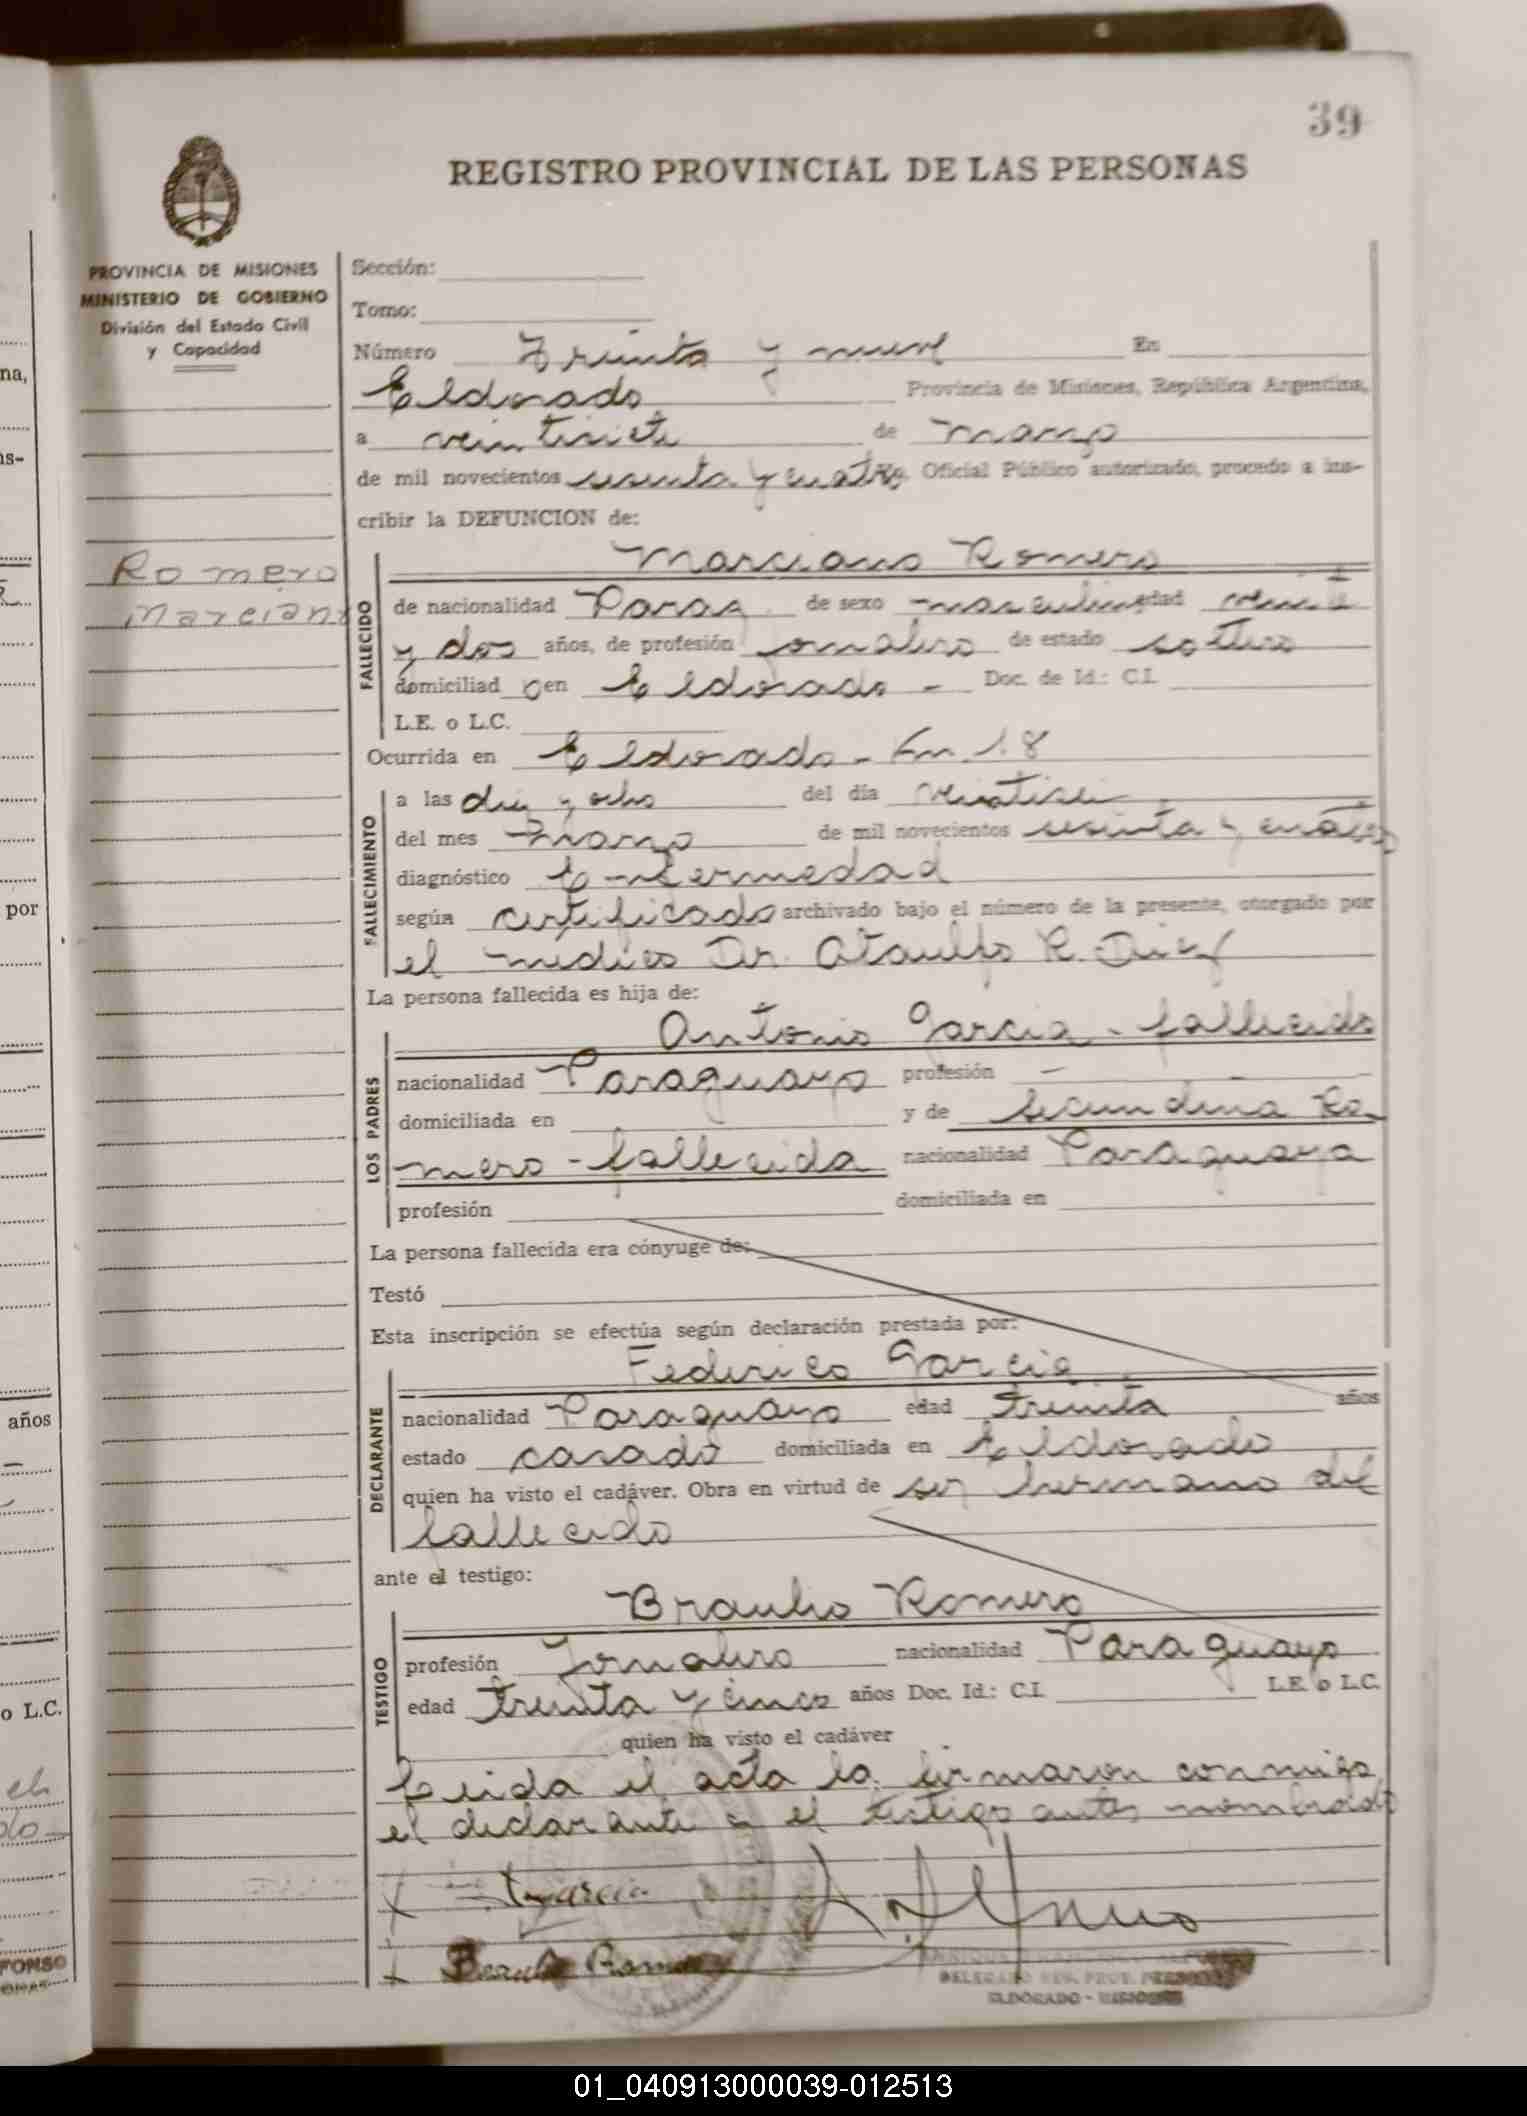 39
REGISTRO PROVINCIAL DE LAS PERSONAS
PROVINCIA DE MISIONES
MINISTERIO DE GOBIERNO
División del Estado Civil
y Capacidad
Romero
Marciano
Sección:
Tomo:
Número Treinta y nueve En
Eldorado Provincia de Misiones, República Argentina,
a veintisiete de marzo
de mil novecientos sesenta y cuatro, Oficial Público autorizado, procedo a ins-
cribir la DEFUNCION de:
FALLECIDO
Marciano Romero
de nacionalidad Parag. de sexo masculino edad
y dos años, de profesión jornalero de estado soltero
domiciliad o en Eldorado - Doc. de Id.: C.I.
L.E. o L.C.
Ocurrida en Eldorado - Km. 18
FALLECIMIENTO
a las diez y ocho del día
del mes marzo de mil novecientos sesenta y cuatro
diagnóstico Enfermedad
según certificado archivado bajo el número de la presente, otorgado por
el médico Dr. Ataulfo R.
La persona fallecida es hija de:
LOS PADRES
Antonio Garcia - fallecido
nacionalidad Paraguayo profesión —
domiciliada en y de Secundina Ro-
mero - fallecida nacionalidad Paraguaya
profesión domiciliada en
La persona fallecida era cónyuge de:
Testó
Esta inscripción se efectúa según declaración prestada por:
DECLARANTE
Federico Garcia
nacionalidad Paraguayo edad treinta años
estado casado domiciliada en Eldorado
quien ha visto el cadáver. Obra en virtud de ser hermano del
fallecido
ante el testigo:
TESTIGO
Braulio Romero
profesión Jornalero nacionalidad Paraguayo
edad treinta y cinco años Doc. Id.: C.I. L.E. o L.C.
quien ha visto el cadáver
Leida el acta la firmaron conmigo
el declarante y el testigo antes nombrado
Garcia
Braulio Romero
DELEGADO REG. PROV. PERSONAS
ELDORADO - MISIONES
na,
ns-
por
años
o L.C.
01_040913000039-012513